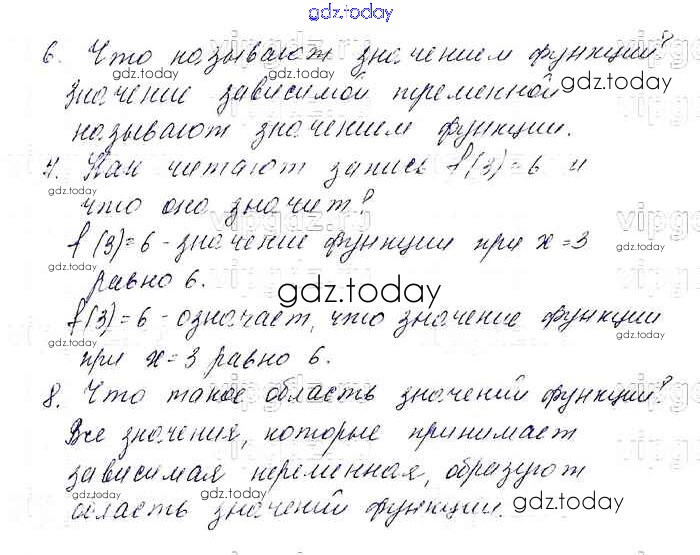 gdz.today
6. Что называют значением функции?
Значение зависимой переменной
называют значением функции.
7. Как читают запись f(3)=6 и
что она значит?
f(3)=6 - значение функции при x=3
равно 6.
gdz.today
f(3)=6 - означает, что значение функции
при x=3 равно 6.
8. Что такое область значений функции?
Все значения, которые принимает
зависимая переменная, образуют
область значений функции.
gdz.today